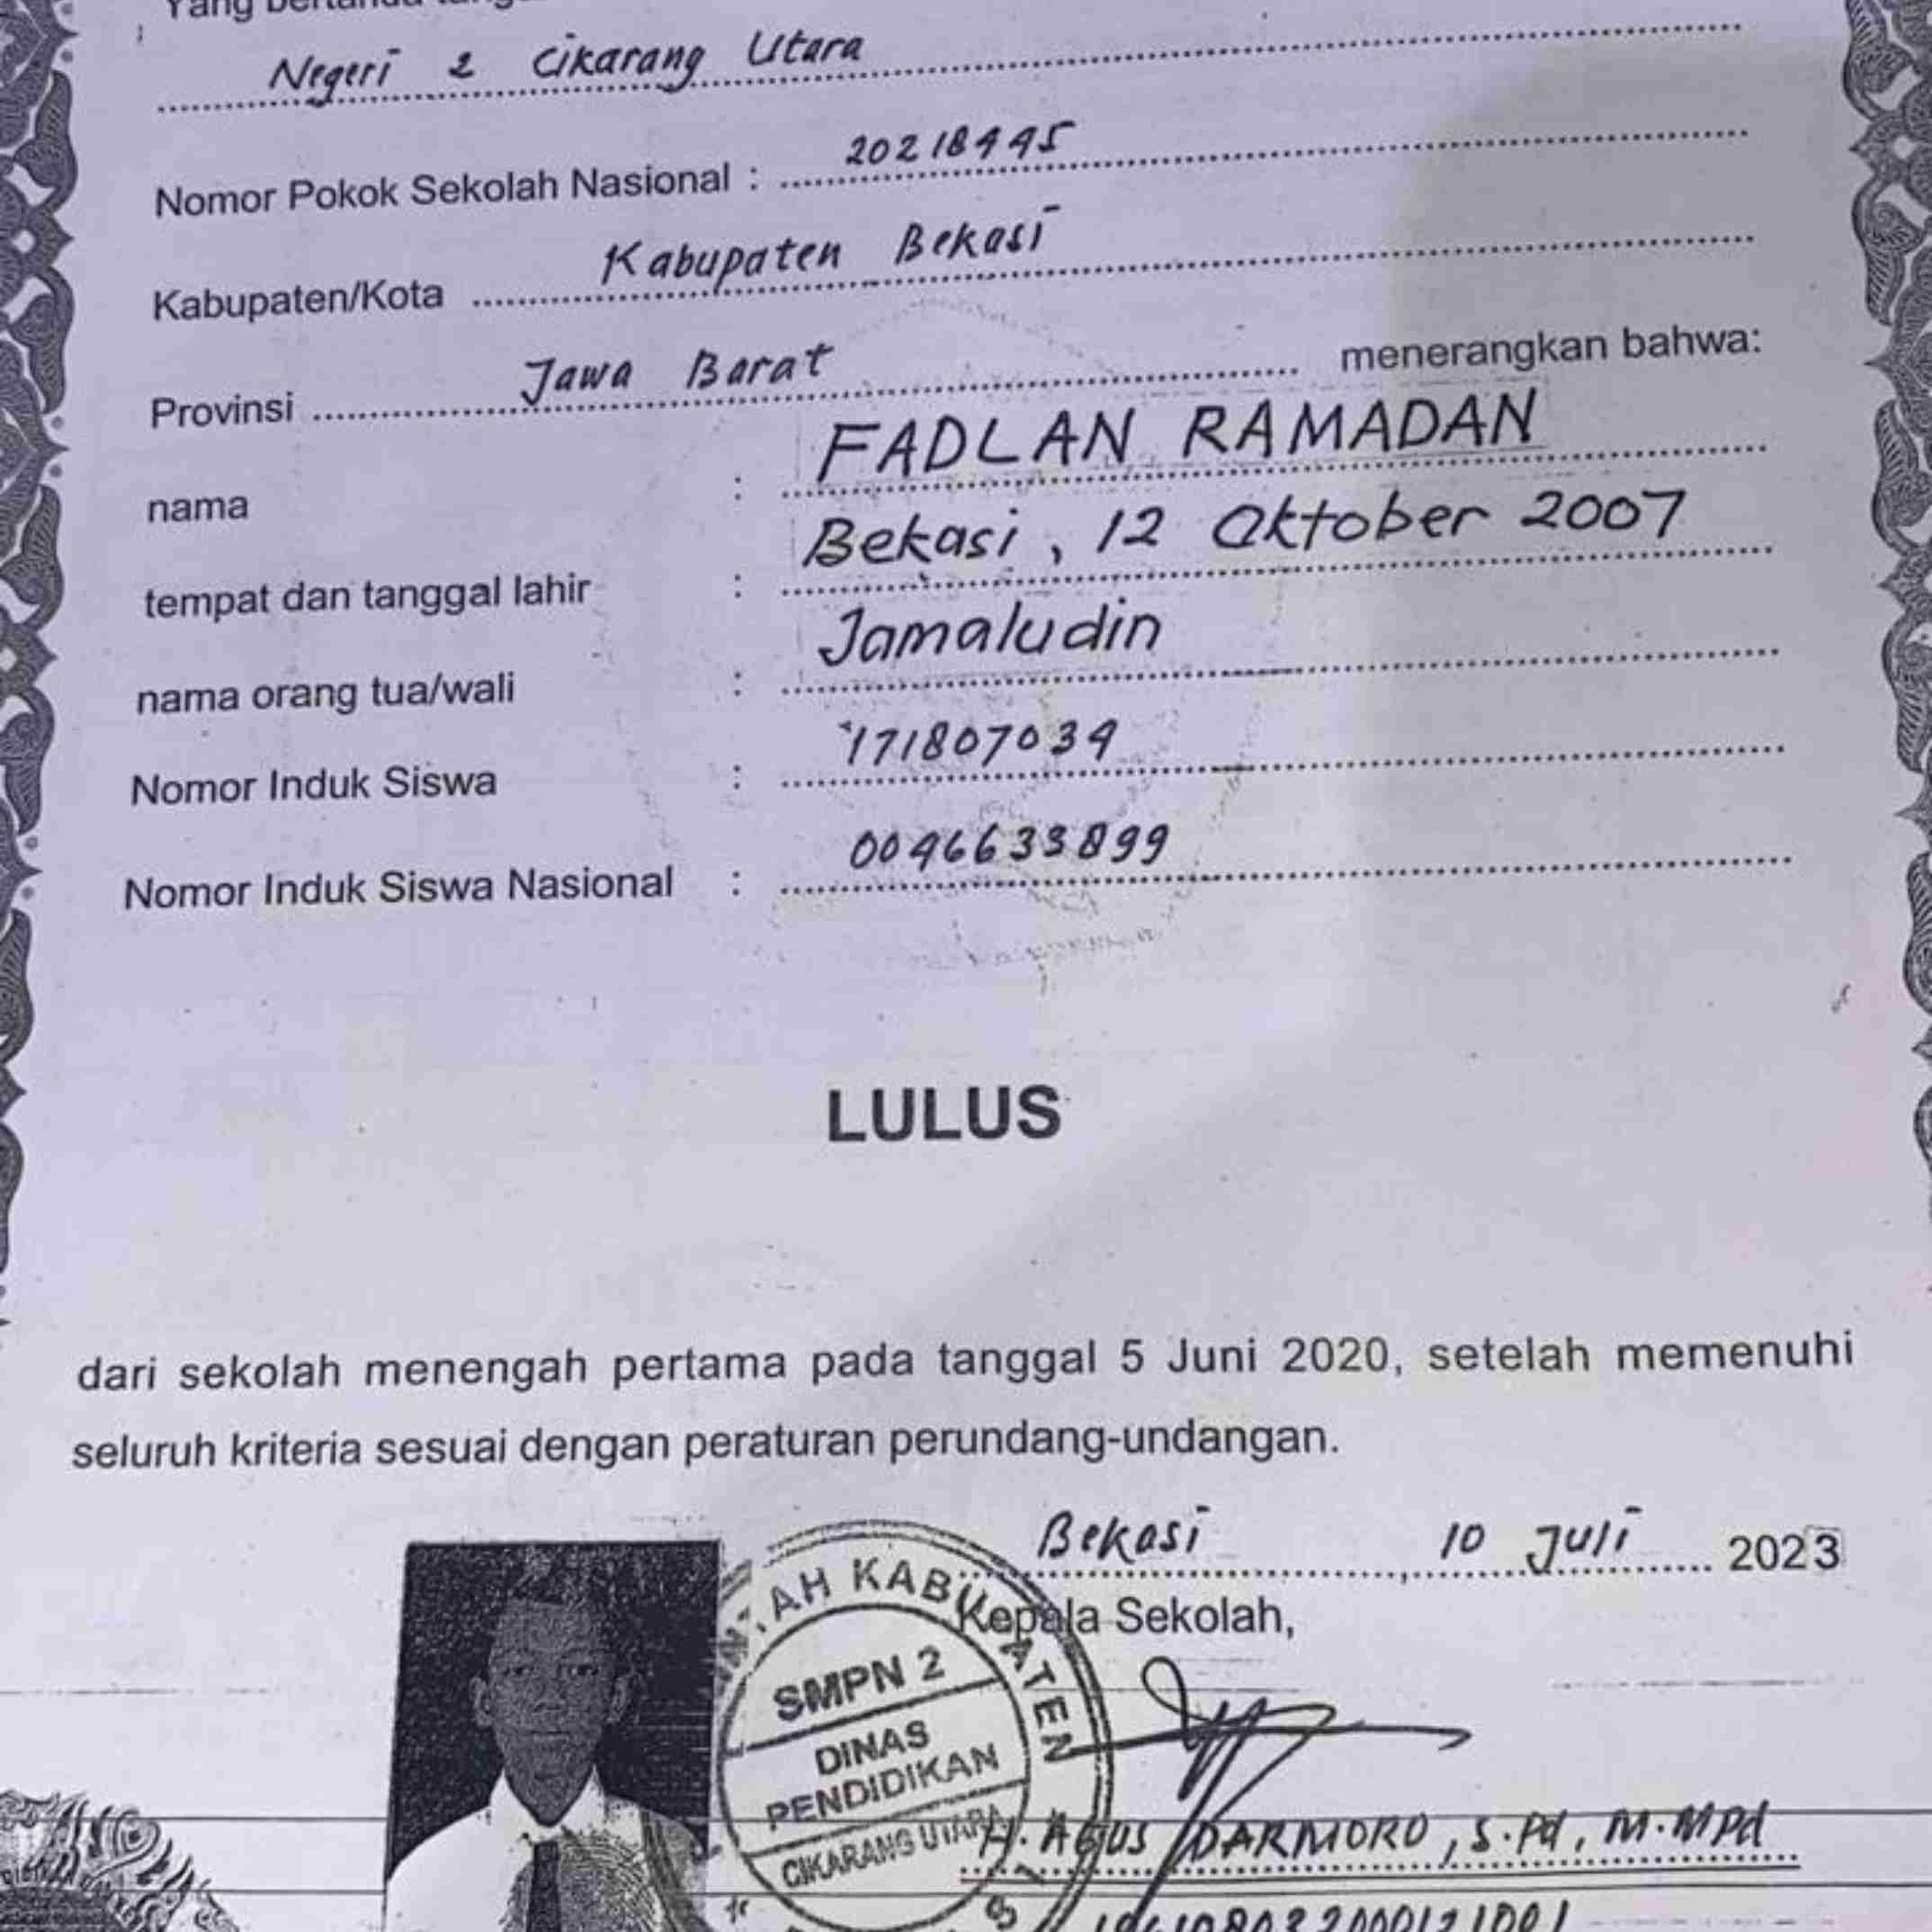 Yang bertanda tang
Negeri 2 Cikarang Utara
Nomor Pokok Sekolah Nasional : 20218445
Kabupaten/Kota Kabupaten Bekasi
Provinsi Jawa Barat menerangkan bahwa:
nama : FADLAN RAMADAN
tempat dan tanggal lahir : Bekasi, 12 Oktober 2007
nama orang tua/wali : Jamaludin
Nomor Induk Siswa : 171807034
Nomor Induk Siswa Nasional : 0046633899
LULUS
dari sekolah menengah pertama pada tanggal 5 Juni 2020, setelah memenuhi
seluruh kriteria sesuai dengan peraturan perundang-undangan.
Bekasi, 10 Juli 2023
Kepala Sekolah,
KABUPATEN
SMPN 2
DINAS
PENDIDIKAN
CIKARANG UTARA
H. AGUS DARMORO, S.Pd, M.MPd